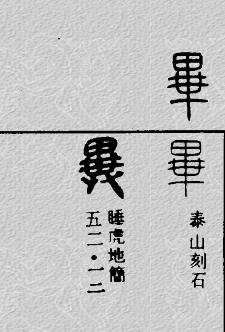 畢
畢
泰山刻石
畢
睡虎地簡
五二·一二